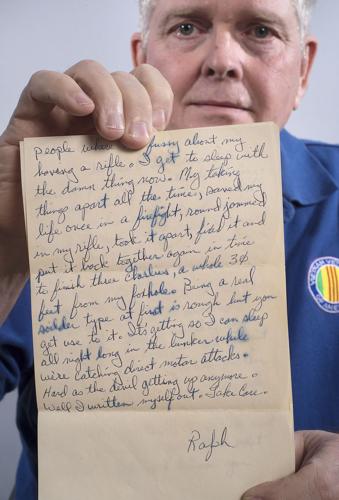 people where fussy about my
having a rifle. I get to sleep with
the damn thing now. My taking
things apart all the time, saved my
life once in a firefight, round jammed
in my rifle, took it apart, fixed it and
put it back together again in time
to finish three Charlies, a whole 30
feet from my foxhole. Being a real
soldier type at first is rough but you
get use to it. Its getting so I can sleep
all night long in the bunker while
we're catching direct motar attacks.
Hard as the devil getting up anymore.
Well I written myself out. Take Care.
Ralph
VIETNAM VETERANS
OF AMERICA